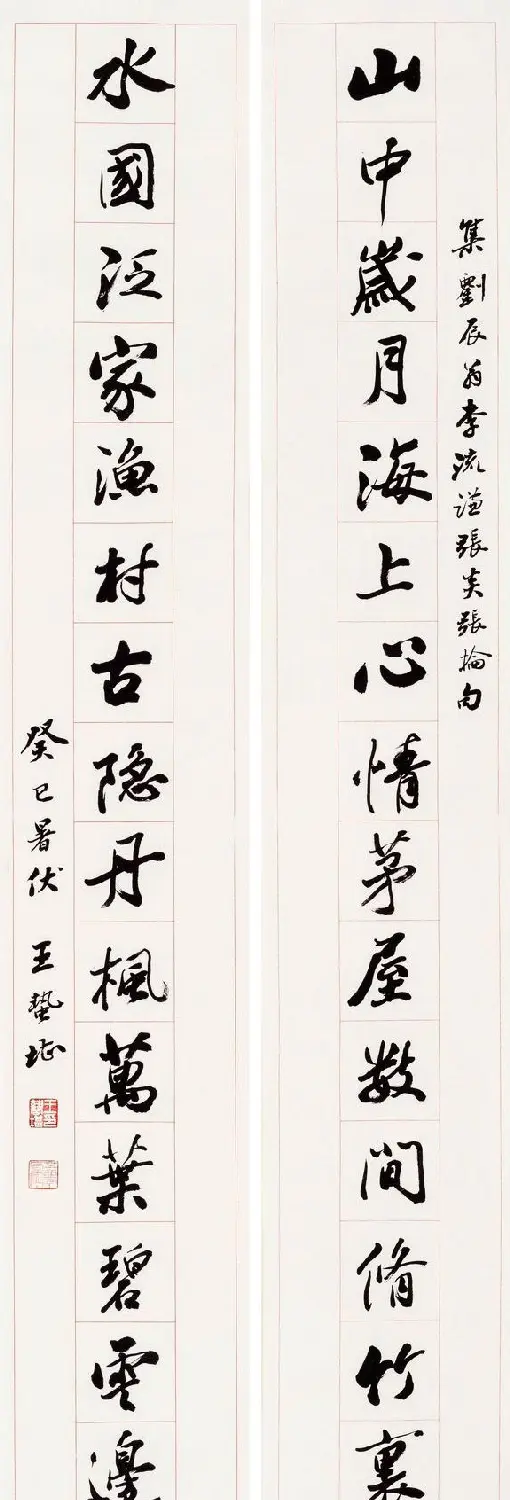 集劉辰翁李流謙張炎張掄句
山中歲月海上心情茅屋数間脩竹裏
水國泛家漁村古隐丹楓萬葉碧雲邊
癸巳暑伏 王蟄堪